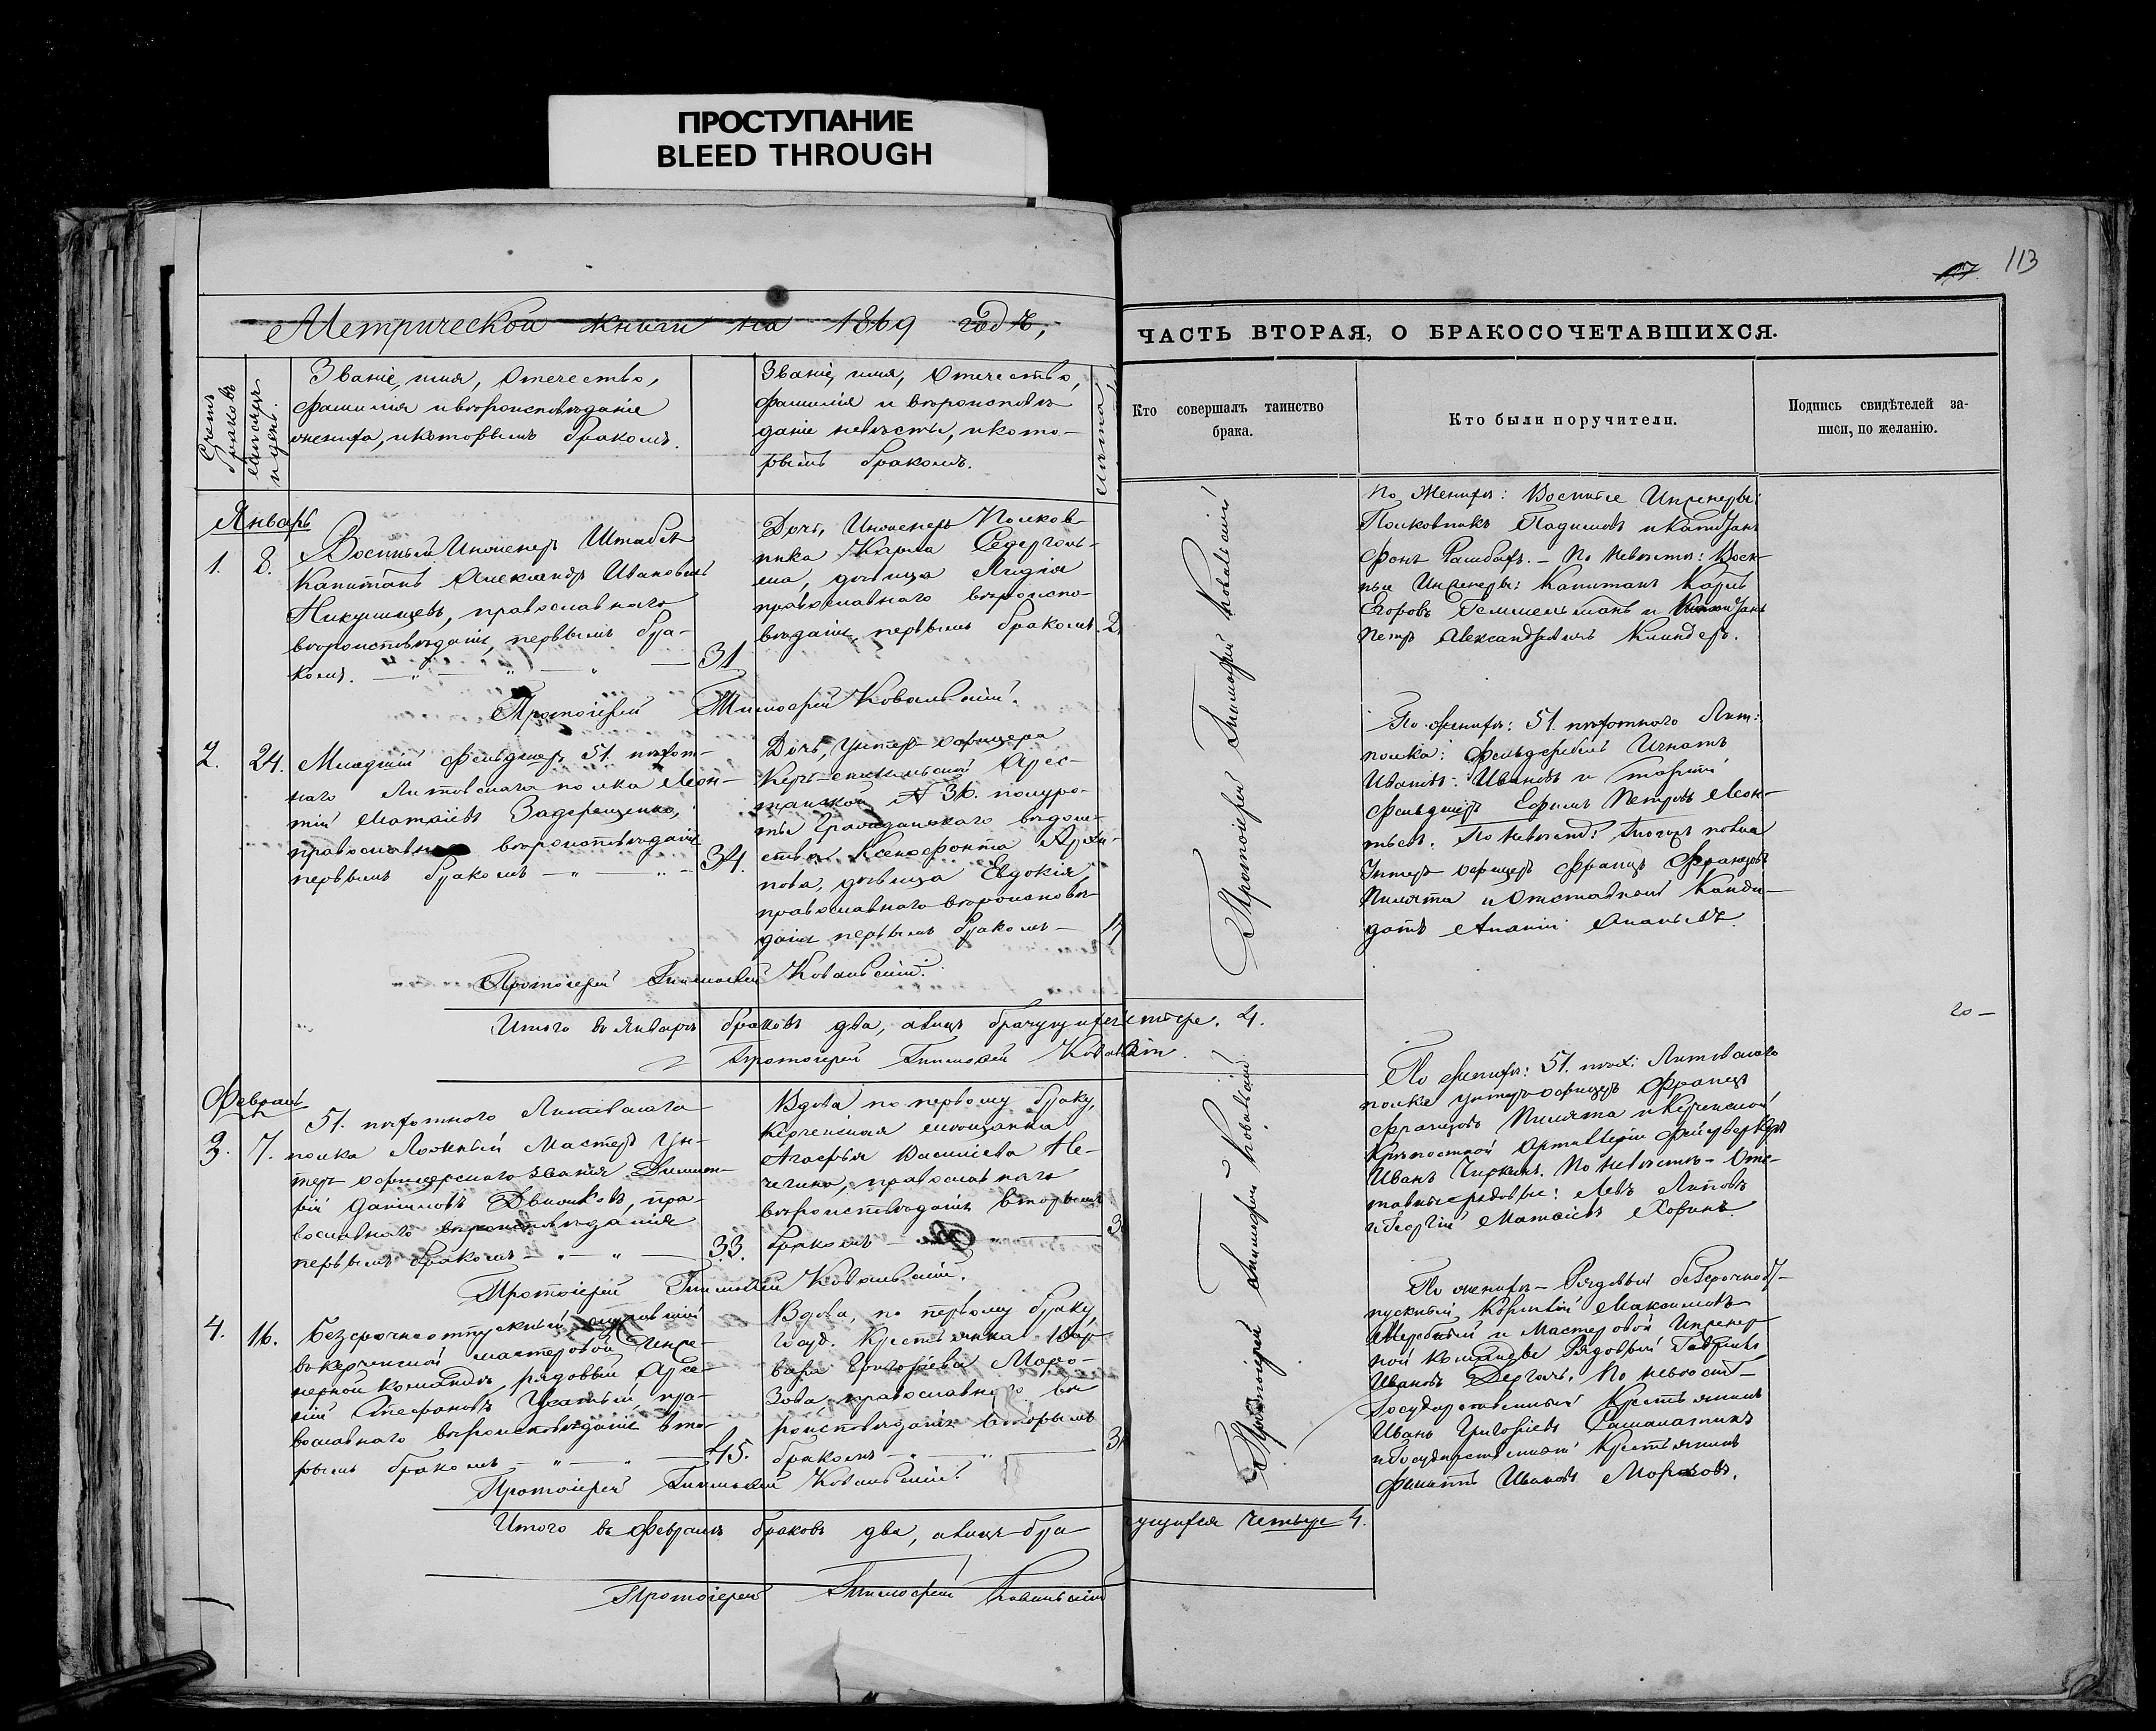 ПРОСТУПАНИЕ
BLEED THROUGH
113
Метрической книги на 1869 годъ,
ЧАСТЬ ВТОРАЯ, О БРАКОСОЧЕТАВШИХСЯ.
Счетъ браковъ
и день.
Званіе, имя, отечество,
фамилія и вѣроисповѣданіе
жениха, и которымъ бракомъ.
Званіе, имя, отечество,
фамилія и вѣроисповѣ
даніе невѣсты, и кото-
рымъ бракомъ.
Лѣта
Кто совершалъ таинство
брака.
Кто были поручители.
Подпись свидѣтелей за-
писи, по желанію.
Январь
1. 8.
Военный Инженеръ Штабсъ
Капитанъ Александръ Ивановъ
православнаго
вѣроисповѣданія, первымъ бра-
комъ. 31
Дочь, Инженеръ Полков-
ника Карла
ма, дѣвица Лидія
православнаго вѣроиспо-
вѣданія, первымъ бракомъ. 2
Протоіерей Тимофей Ковальскій.
По женихѣ: Военные Инженеры:
Полковникъ и Капитанъ
фонъ По невѣстѣ: Воен-
ные Инженеры: Капитанъ Карлъ
Егоровъ и
Петръ Александровичъ Клиндеръ.
2. 24.
Младшій фельдшеръ 51. пѣхот-
наго Литовскаго полка Леон-
тій Матвѣевъ
вѣроисповѣданія
первымъ бракомъ 34.
Дочь, Унтеръ-офицера
Керчь-еникольской Арес-
танской № 36. полуро-
ты Гражданскаго вѣдом-
ства Ксенофонта
дѣвица Евдокія,
православнаго вѣроисповѣ-
данія, первымъ бракомъ 17
Протоіерей Тимофей Ковальскій.
По женихѣ: 51. пѣхотнаго Лит:
полка: фельдфебель Игнатъ
Ивановъ Ивановъ и старшій
фельдшеръ Ефимъ Петровъ Леон-
тьевъ. По невѣстѣ: полка
Унтеръ-офицеръ Францъ Францовъ
Пилята и отставной Канди-
датъ Ананій
Протоіерей Тимофей Ковальскій
Итого въ Январѣ браковъ два, а лицъ брачущихся четыре. 4.
Протоіерей Тимофей Ковальскій.
20 —
Февраль
3. 7.
51. пѣхотнаго Литовскаго
полка Ложный Мастеръ Ун-
теръ-офицерскаго званія Димит-
рій Даниловъ пра-
вославнаго вѣроисповѣданія
первымъ бракомъ 33.
Вдова, по первому браку,
Керченская мѣщанка
Агафья Василіева Не-
православнаго
вѣроисповѣданія вторымъ
бракомъ 3
Протоіерей Тимофей Ковальскій.
По женихѣ: 51. пѣх: Литовскаго
полка унтеръ-офицеръ Францъ
Францовъ Пилята и Керченской
Крѣпостной Артиллеріи фейерверкеръ
Иванъ Чиркинъ. По невѣстѣ - Отс-
тавные рядовые: Левъ
и Георгій Матвѣевъ
4. 16.
Безсрочноотпускный
въ Керченской мастеровой Инже-
нерной командѣ, рядовый Арсе-
ній Стефановъ пра-
вославнаго вѣроисповѣданія вто-
рымъ бракомъ 45.
Вдова, по первому браку,
Госуд. Крестьянка Вар-
вара Григорьева Моро-
зова, православнаго вѣ-
роисповѣданія вторымъ
бракомъ 3
Протоіерей Тимофей Ковальскій.
По женихѣ - Рядовый безсрочноот-
пускный Корнилій Максимовъ
и Мастеровой Инженер-
ной команды Рядовый Гавріилъ
Ивановъ Дергачъ. По невѣстѣ -
Государственный Крестьянинъ
Иванъ Григорьевъ
и Государственный Крестьянинъ
Филиппъ Ивановъ Морозовъ.
Протоіерей Тимофей Ковальскій
Итого въ Февралѣ браковъ два, а лицъ бра-
чущихся четыре 4.
Протоіерей Тимофей Ковальскій